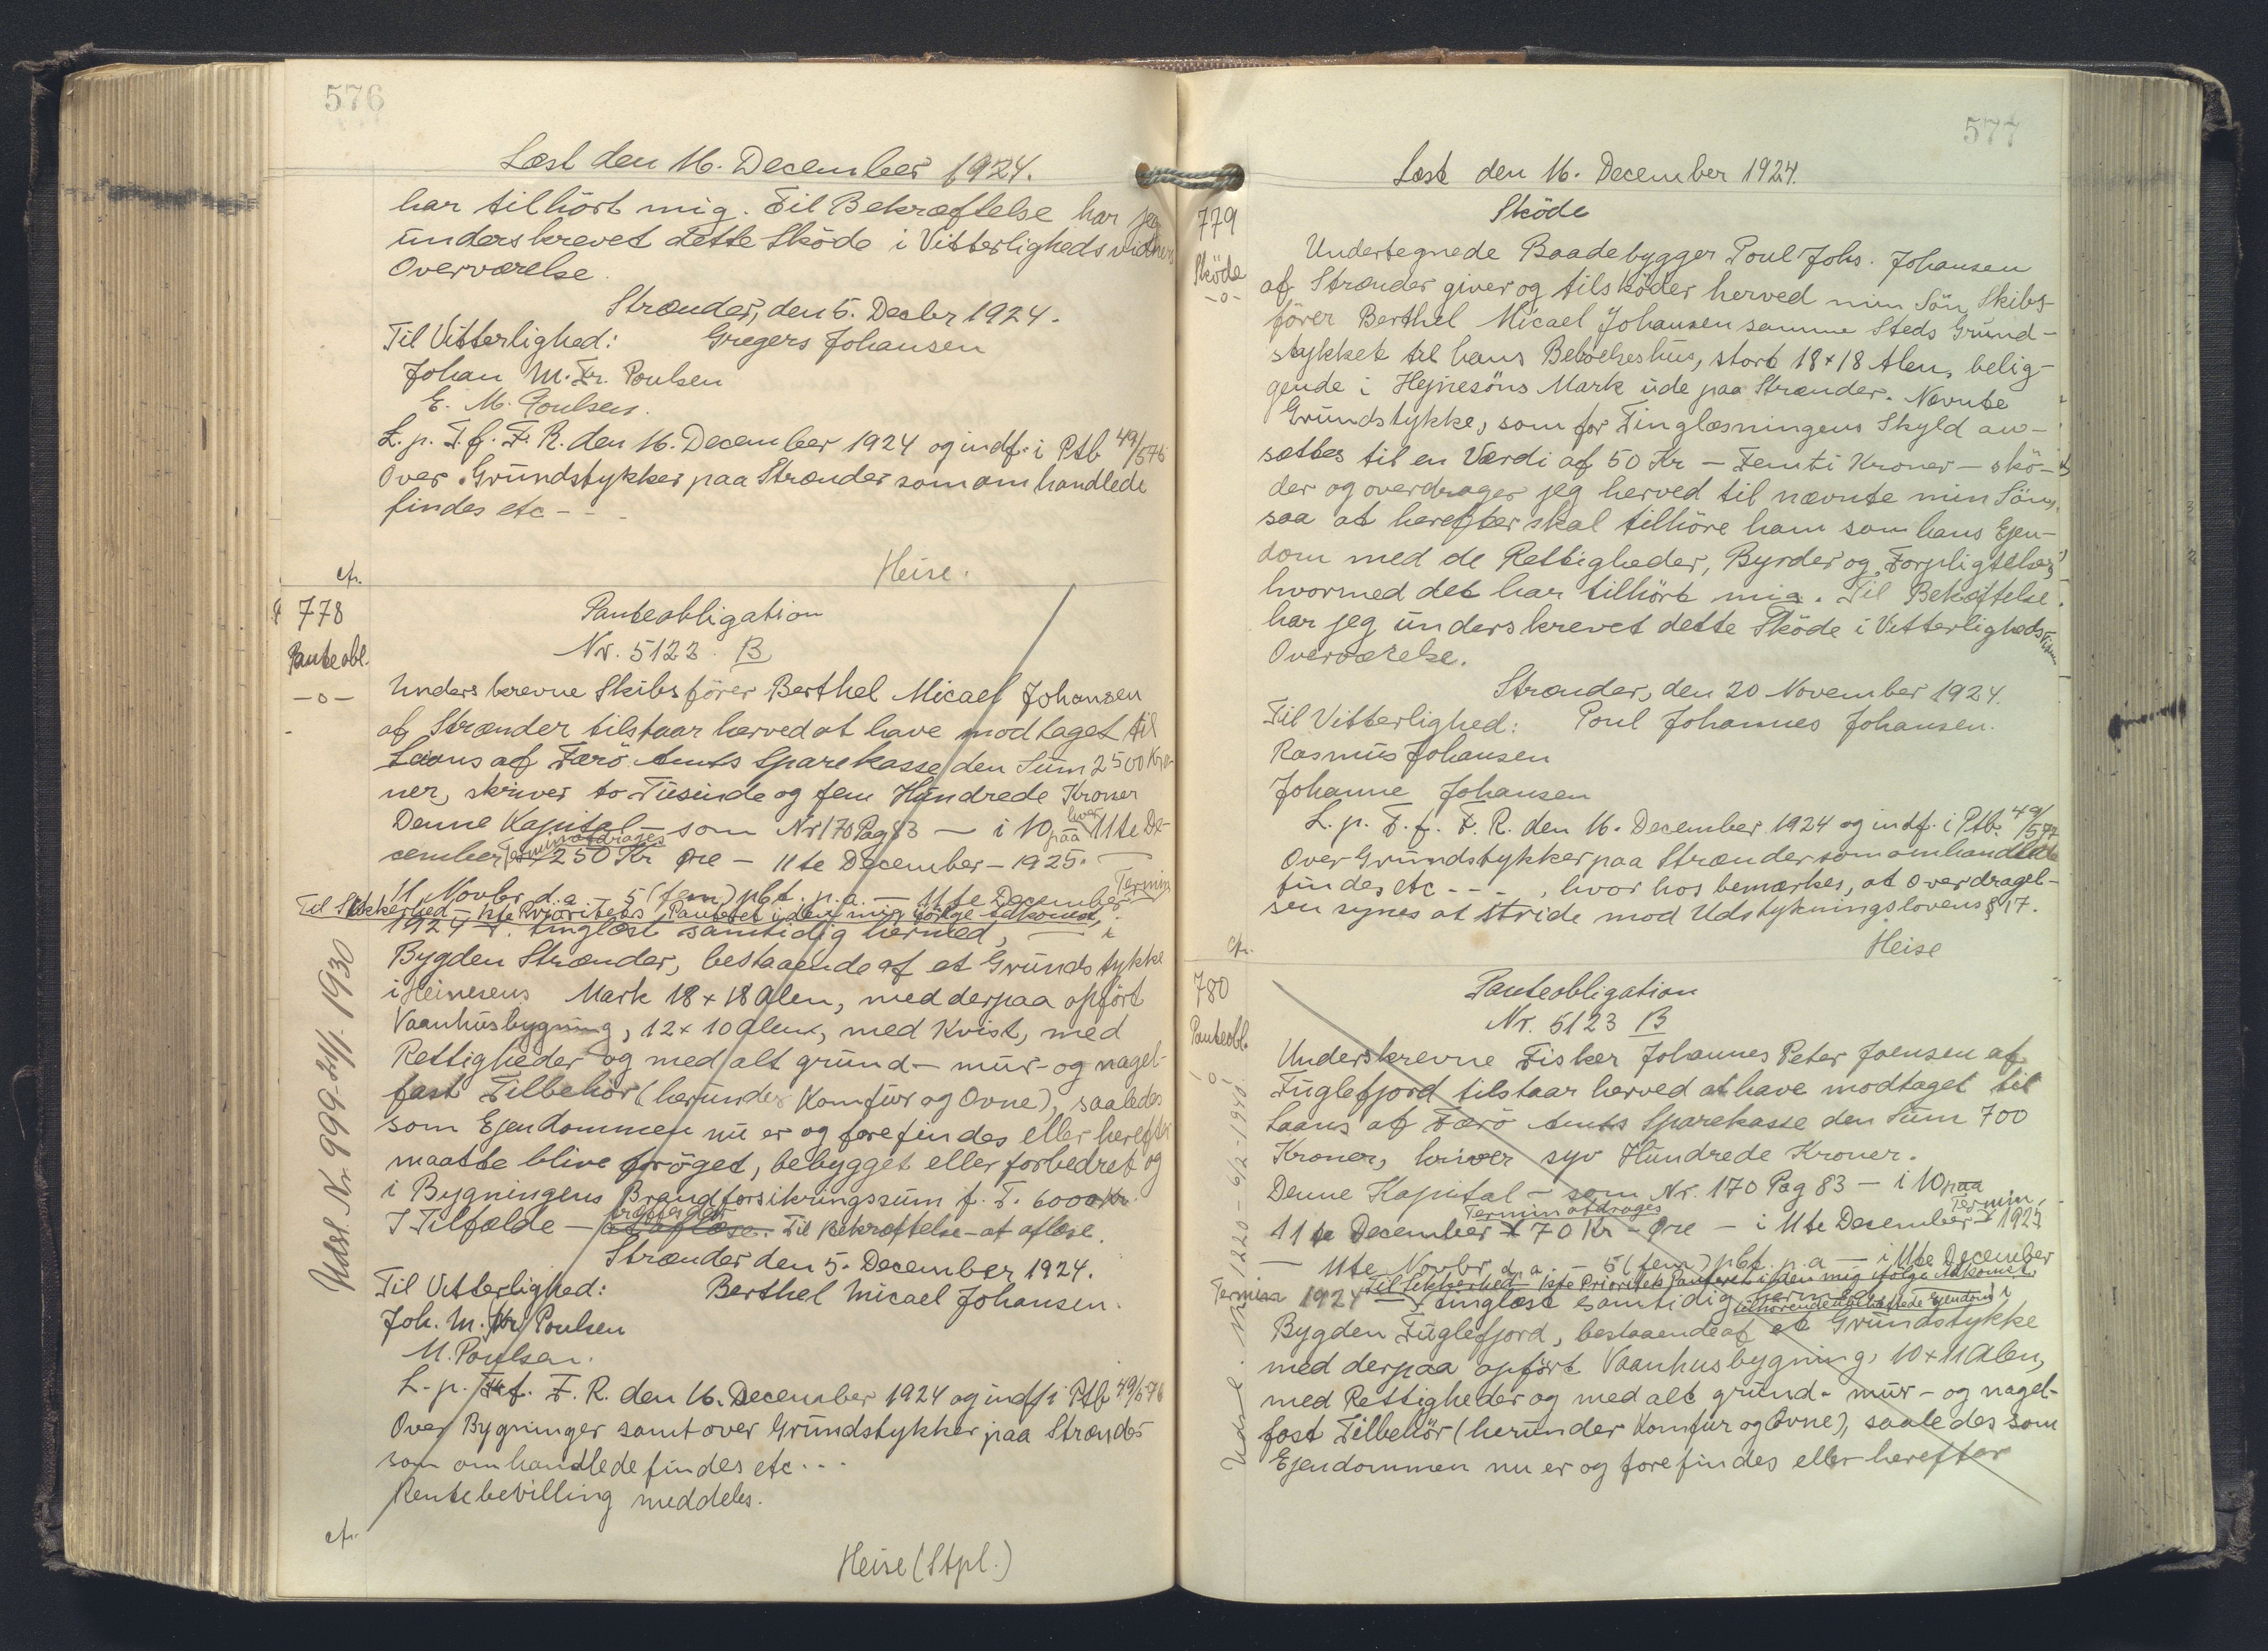 576
Læst den 16. December 1924.
har tilhört mig. Til Bekræftelse har jeg
underskrevet dette Sköde i Vitterlighedsvidners
Overværelse.
Strænder, den 5. Decbr 1924.
Til Vitterlighed: Gregers Johansen
Johan M. Fr. Poulsen
E. M. Poulsen.
L. p. T. f. F. R. den 16. December 1924 og indf. i Ptb 49/576
Over Grundstykker paa Strænder som omhandlede
findes etc - - -
Heise.
cfr.
778
Panteobl.
-o-
Panteobligation
Nr. 5122 B
Underskrevne Skibsförer Berthel Micael Johansen
af Strænder tilstaar herved at have modtaget til
Laans af Færö Amts Sparekasse den Sum 2500 Kro-
ner, skriver to Tusinde og fem Hundrede Kroner
Denne Kapital - som Nr 170 Pag 83 - i 10 paa hver 11te De-
cember Termin afdrages 250 Kr Øre - 11te December - 1925.
11 Novbr d. a. - 5 (fem) pCt. p. a. - 11te December Termin
Til Sikkerhed - 1ste Prioritets Panteret i den mig ifölge Adkomst,
1924 - tinglæst samtidig hermed, - i
Bygden Strænder, bestaaende af et Grundstykke
i Heinesens Mark 18 x 18 Alen, med derpaa opfört
Vaanhusbygning, 12 x 10 Alen, med Kvist, med
Rettigheder og med alt grund- mur- og nagel-
fast Tilbehör (herunder Komfur og Ovne), saaledes
som Ejendommen nu er og forefindes eller herefter
maatte blive foröget, bebygget eller forbedret og
i Bygningens Brandforsikringssum f. T. 6000 Kr.
I Tilfælde - at aflæse. Til Bekræftelse - at aflæse.
Strænder den 5. December 1924.
Til Vitterlighed: Berthel Micael Johansen.
Joh. M. Fr. Poulsen
M. Poulsen.
L. p. T. f. F. R. den 16. December 1924 og indf i Ptb 49/576
Over Bygninger samt over Grundstykker paa Strænder
som omhandlede findes etc...
Rentebevilling meddeles.
cfr.
Heise (Stpl.)
Udsl. Nr. 999 - 24/1. 1930
577
Læst den 16. December 1924.
779
Sköde
-o-
Sköde
Undertegnede Baadebygger Poul Johs. Johansen
af Strænder giver og tilsköder herved min Sön Skibs-
förer Berthel Micael Johansen samme Steds Grund-
stykket til hans Beboelseshus, stort 18 x 18 Alen, belig-
gende i Hejnesöns Mark ude paa Strænder. Nævnte
Grundstykke, som for Tinglæsningens Skyld an-
sættes til en Værdi af 50 Kr - Femti Kroner - skö-
der og overdrager jeg herved til nævnte min Sön,
saa at herefter skal tilhöre ham som hans Ejen-
dom med de Rettigheder, Byrder og Forpligtelser,
hvormed det har tilhört mig. Til Bekæftelse
har jeg underskrevet dette Sköde i Vitterligheds
Overværelse.
Strænder, den 20 November 1924.
Til Vitterlighed: Poul Johannes Johansen.
Rasmus Johansen
Johanne Johansen
L. p. T. f. F. R. den 16. December 1924 og indf. i Ptb. 49/577
Over Grundstykker paa Strænder som omhandlede
findes etc - - - , hvor hos bemærkes, at Overdragel-
sen synes at stride mod Udstykningslovens § 17.
Heise
cfr.
780
Panteobl.
-o-
Panteobligation
Nr. 5123 B
Underskrevne Fisker Johannes Peter Joensen af
Fuglefjord tilstaar herved at have modtaget til
Laans af Færö Amts Sparekasse den Sum 700
Kroner, skriver syv Hundrede Kroner.
Denne Kapital - som Nr. 170 Pag 83 - i 10 paa
11te December Termin afdrages 70 Kr - Øre - i 11te December Termin 1925
- 11te Novbr d. a. - 5 (fem) pCt. p. a - i 11te December
Termin 1924 Til Sikkerhed - 1ste Prioritets Panteret i den mig ifölge Adkomst,
tinglæst samtidig hermed tilhörende Ejendom i
Bygden Fuglefjord, bestaaende af et Grundstykke
med derpaa opfört Vaanhusbygning, 10 x 11 Alen,
med Rettigheder og med alt grund- mur- og nagel-
fast Tilbehör (herunder Komfur og Ovne), saaledes som
Ejendommen nu er og forefindes eller herefter
Nr 1220 - 6/2-1940.